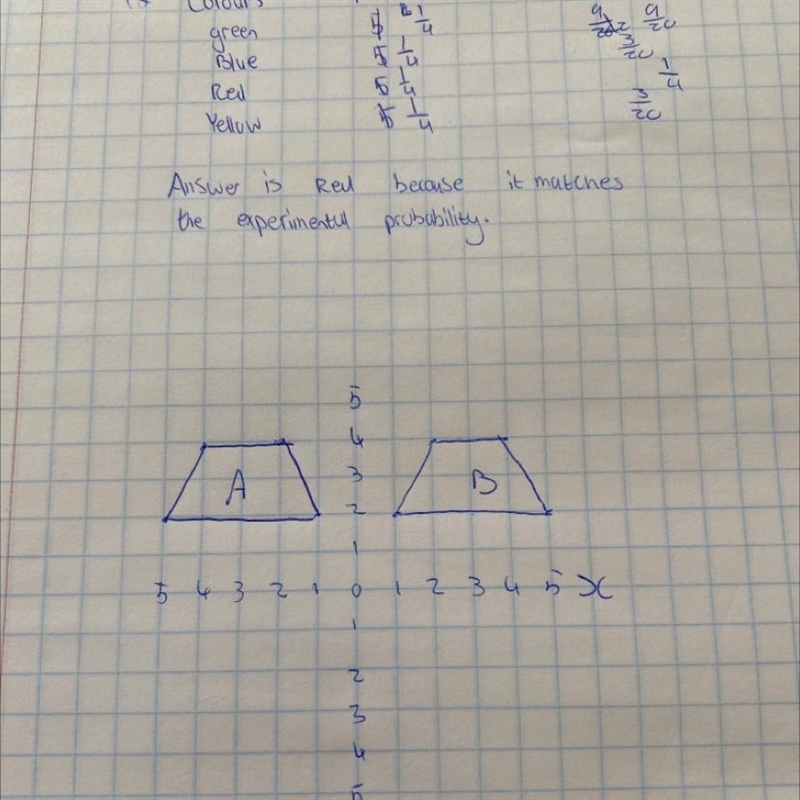 Colours
green 1/4 9/20
Blue 5 1/4 3/20
Red 5 1/4 1/4
Yellow 5 1/4 3/20
Answer is Red because it matches
the experimental probability.
5
4
A 3 B
2
1
5 4 3 2 1 0 1 2 3 4 5 x
1
2
3
4
5